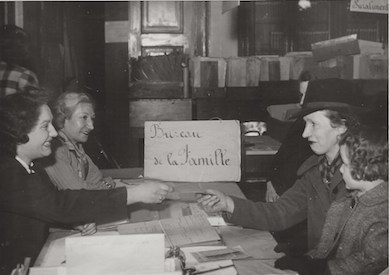 Bureau
de la Famille